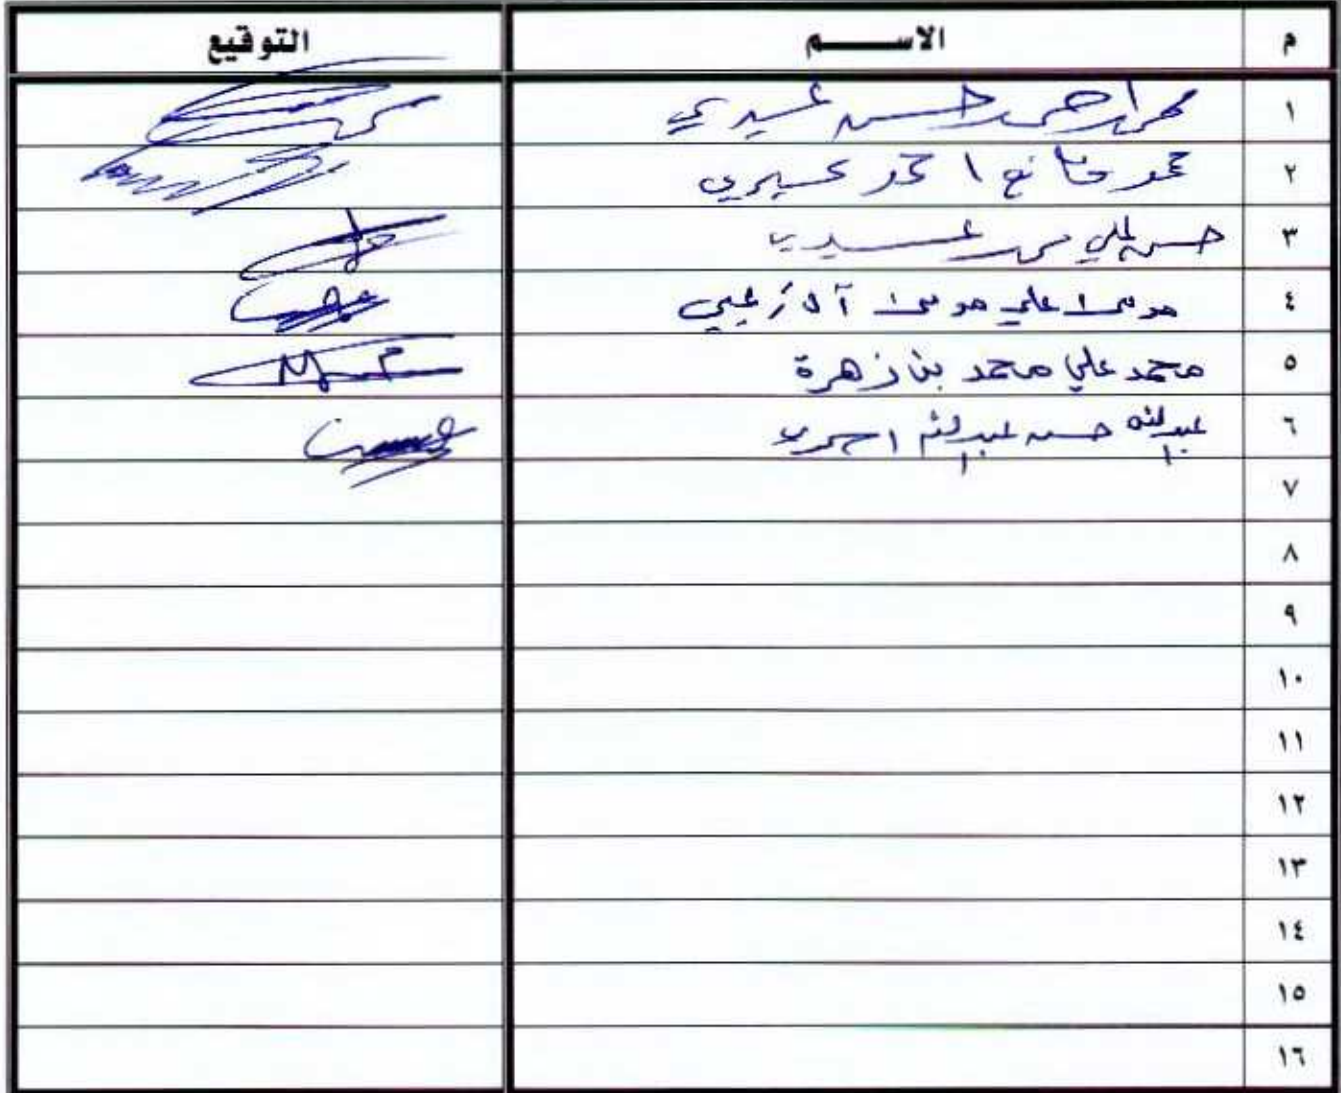 م الاســـــم التوقيع
١ محمد احمد حسن عسيري
٢ محمد مانع احمد عسيري
٣ حسن علي عسيري
٤ موسى علي موسى آل زعبي
٥ محمد علي محمد بن زهرة
٦ عبدالله حسن عبدالله احمري
٧
٨
٩
١٠
١١
١٢
١٣
١٤
١٥
١٦